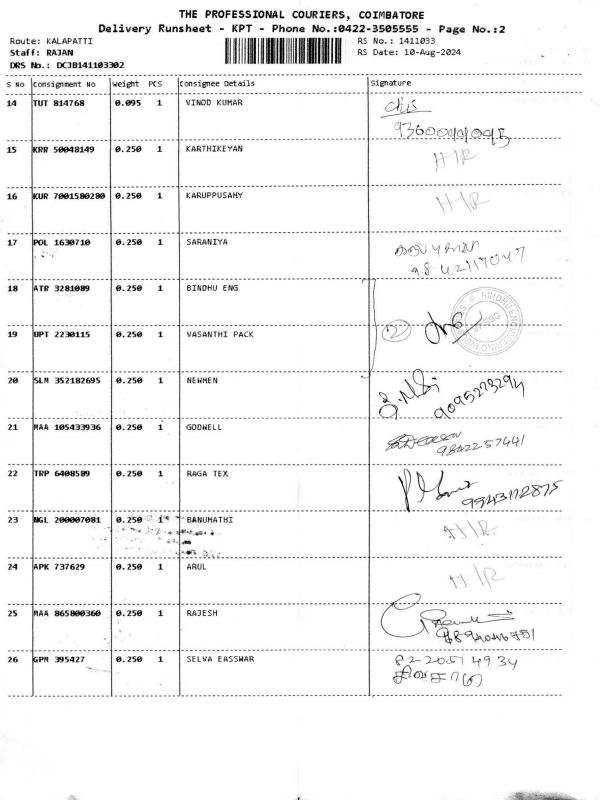 THE PROFESSIONAL COURIERS, COIMBATORE
Delivery Runsheet - KPT - Phone No.:0422-3505555 - Page No.:2
Route: KALAPATTI RS No.: 1411033
Staff: RAJAN RS Date: 10-Aug-2024
DRS No.: DCJB141103302
S No Consignment No Weight PCS Consignee Details Signature
14 TUT 814768 0.095 1 VINOD KUMAR
15 KRR 50048149 0.250 1 KARTHIKEYAN H/R
16 KUR 7001580280 0.250 1 KARUPPUSAMY H/R
17 POL 1630710 0.250 1 SARANIYA
9842117047
18 ATR 3281089 0.250 1 BINDHU ENG
19 UPT 2230115 0.250 1 VASANTHI PACK 2
20 SLM 352182695 0.250 1 NEWMEN
9095273294
21 MAA 105433936 0.250 1 GODWELL
9842257441
22 TRP 6408589 0.250 1 RAGA TEX
9943112875
23 NGL 200007081 0.250 1 BANUMATHI H/R
24 APK 737629 0.250 1 ARUL H/R
25 MAA 865800360 0.250 1 RAJESH
26 GPM 395427 0.250 1 SELVA EASSWAR 8220514934